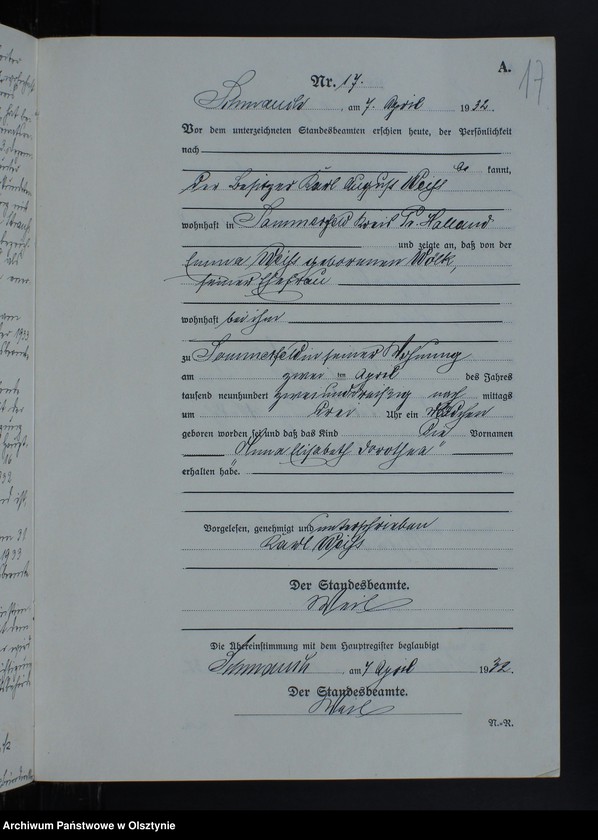 A.
17
Nr. 17.
, am 7. April 1932.
Vor dem unterzeichneten Standesbeamten erschien heute, der Persönlichkeit
nach
be kannt,
der Besitzer Karl August Weiß
wohnhaft in Sommerfeld Kreis Pr. Holland
und zeigte an, daß von der
Emma Weiß geborenen Wölk,
seiner Ehefrau
wohnhaft bei ihm
zu Sommerfeld in seiner Wohnung
am zwei ten April des Jahres
tausend neunhundert zweiunddreißig nach mittags
um drei Uhr ein Mädchen
geboren worden sei und daß das Kind die Vornamen
"Anna Elisabeth Dorothea"
erhalten habe.
Vorgelesen, genehmigt und unterschrieben
Karl Weiß
Der Standesbeamte.
Weil
Die Übereinstimmung mit dem Hauptregister beglaubigt
, am 7 April 1932.
Der Standesbeamte.
Weil
N.-R.
Archiwum Państwowe w Olsztynie